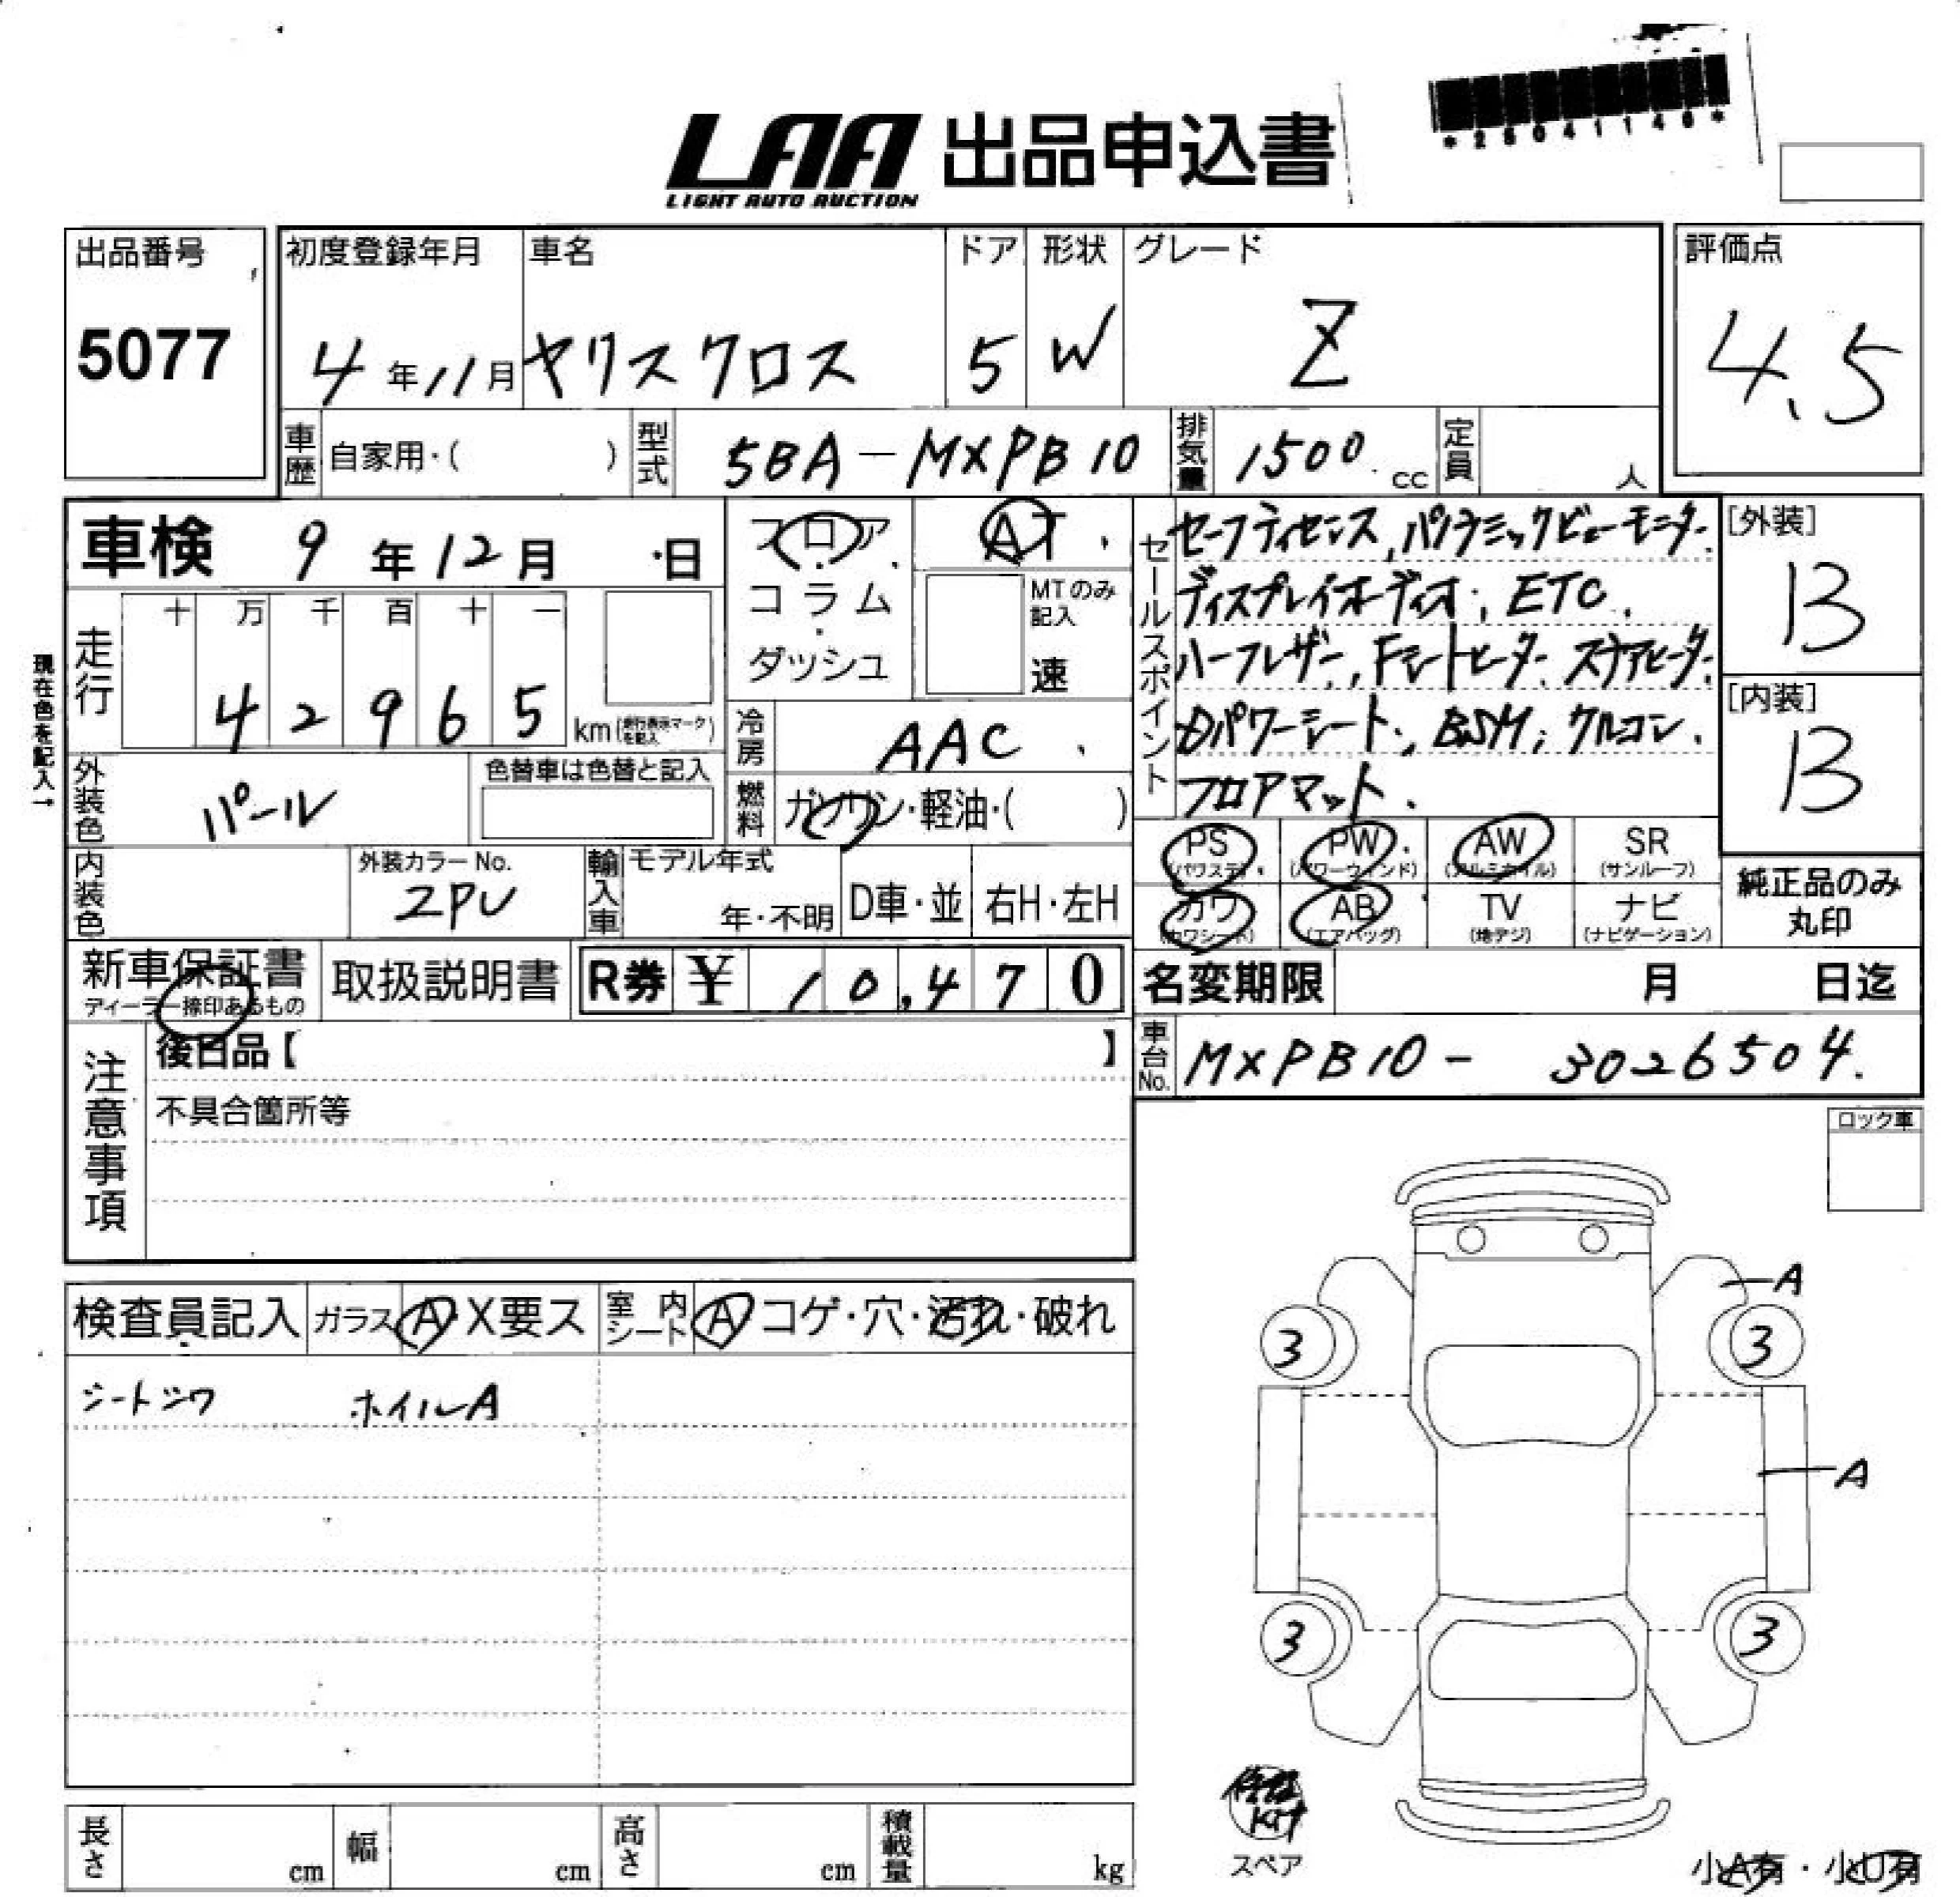 *25041140*
LAA 出品申込書
LIGHT AUTO AUCTION
出品番号
5077
初度登録年月
4年11月
車名
ヤリスクロス
ドア
5
形状
W
グレード
Z
評価点
4.5
車歴 自家用・( )
型式 5BA-MXPB10
排気量 1500 cc
定員 人
車検 9年12月 日
フロア
コラム
・
ダッシュ
AT
MTのみ記入
速
走行
十 万 千 百 十 一
4 2 9 6 5 km(走行表示マークを記入)
現在色を記入→
外装色 パール
色替車は色替と記入
冷房 AAC
燃料 ガソリン・軽油・( )
内装色
外装カラーNo.
2PU
輸入車 モデル年式
年・不明
D車・並 右H・左H
セールスポイント
セーフティセンス, パノラミックビューモニター.
ディスプレイオーディオ, ETC.
ハーフレザー, Fシートヒーター. ステアヒーター.
Dパワーシート, BSM, クルコン.
フロアマット.
[外装]
B
[内装]
B
PS (パワステ)
PW (パワーウィンド)
AW (アルミホイル)
SR (サンルーフ)
カワ (カワシート)
AB (エアバッグ)
TV (地デジ)
ナビ (ナビゲーション)
純正品のみ
丸印
新車保証書
ディーラー捺印あるもの
取扱説明書
R券 ¥ 10,470
名変期限 月 日迄
車台No. MXPB10-3026504.
注意事項
後日品【 】
不具合箇所等
ロック車
検査員記入 ガラス A・X要ス 室内シート A コゲ・穴・汚れ・破れ
シートシワ ホイルA
A
3 3
A
3 3
修理
Kit
スペア
小A有・小U有
長さ cm 幅 cm 高さ cm 積載量 kg